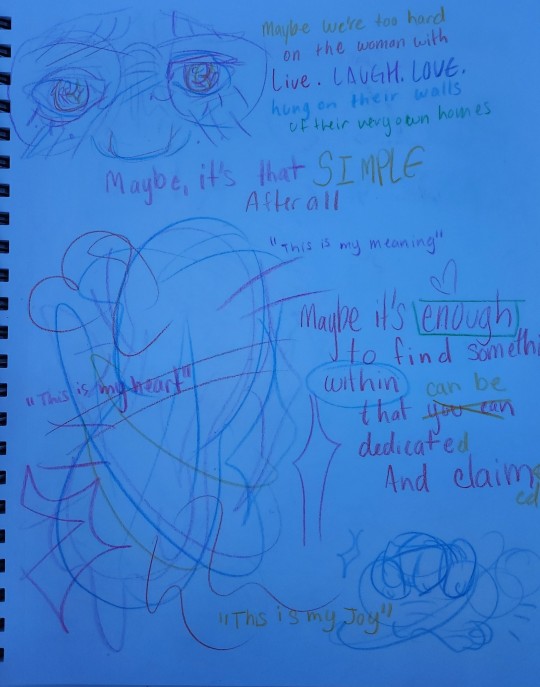 Maybe we're too hard
on the woman with
Live. LAUGH. LOVE.
hung on their walls
of their very own homes
Maybe, it's that SIMPLE
After all
"This is my meaning"
Maybe it's enough
to find somethi
within can be
that you can
dedicated
And claim
ed
"This is my heart"
"This is my Joy"